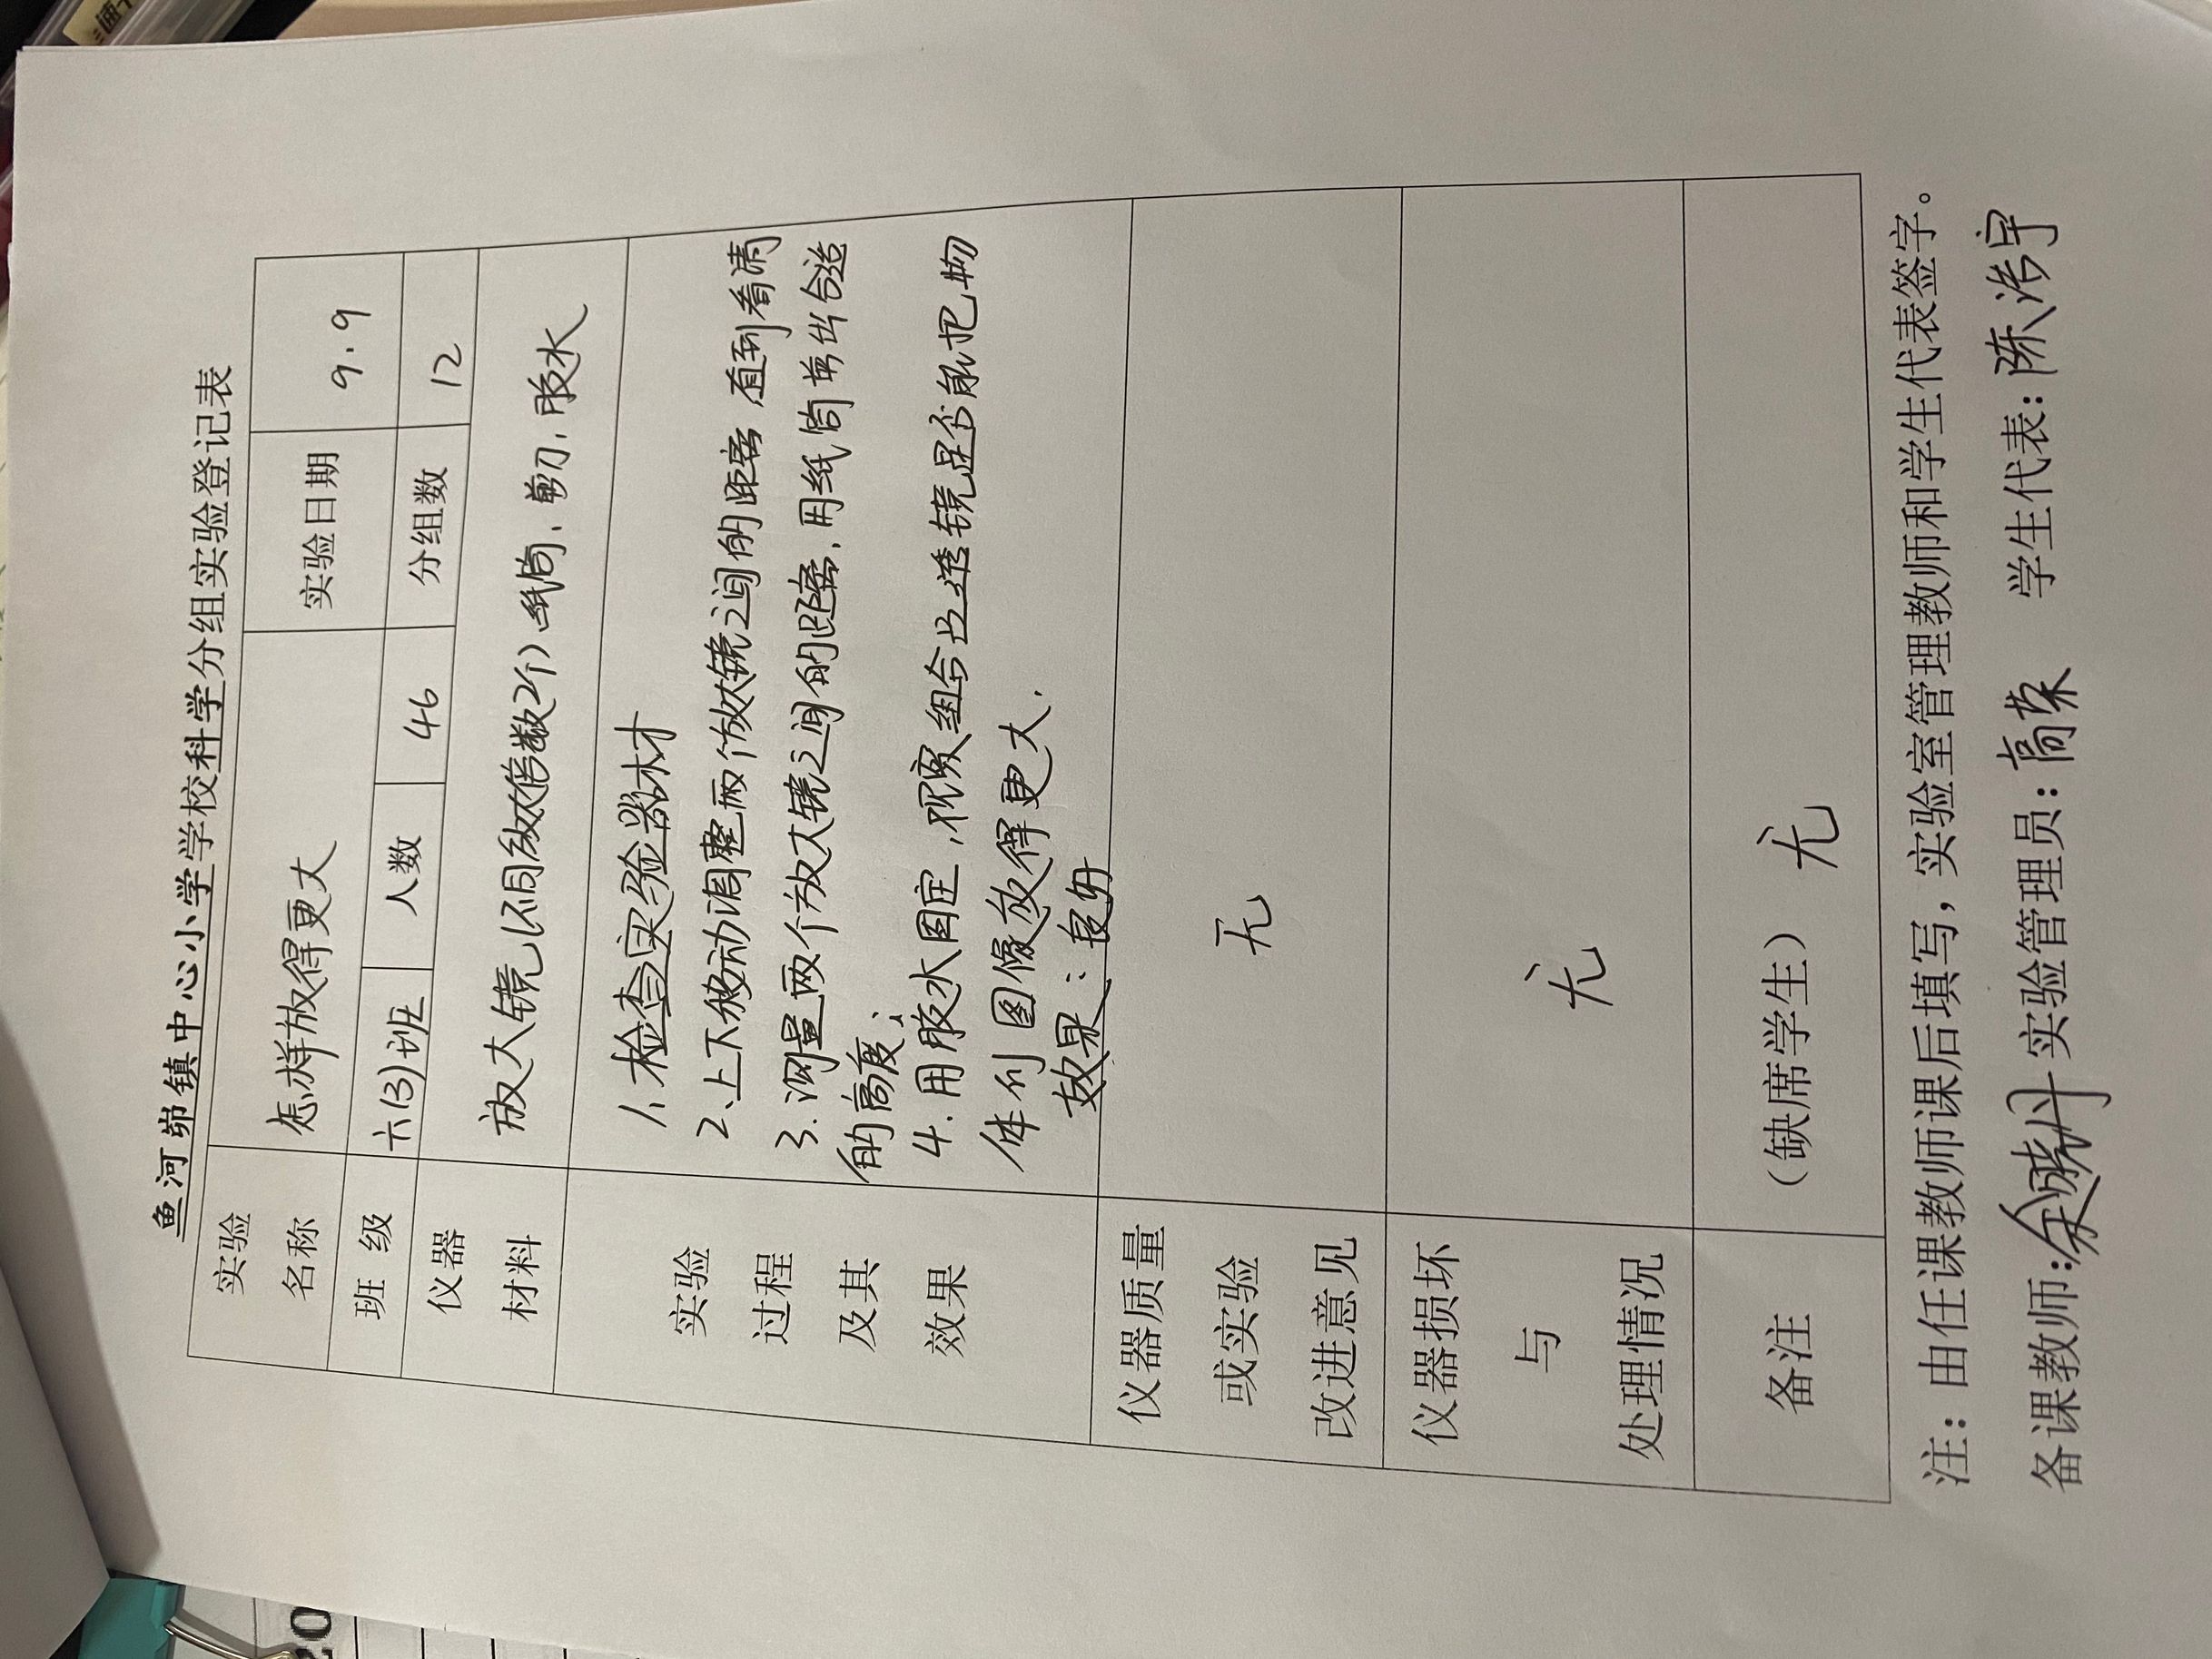 鱼河峁镇中心小学学校科学分组实验登记表
实验名称 怎样放得更大 实验日期 9.9
班 级 六(3)班 人数 46 分组数 12
仪器材料 放大镜(不同放大倍数2个)、纸筒、剪刀、胶水
实验过程及其效果
1、检查实验器材
2、上下移动调整两个放大镜之间的距离,直到看清
3.测量两个放大镜之间的距离,用纸筒剪出合适
的高度;
4.用胶水固定,观察组合凸透镜是否能把物
体的图像放得更大.
效果:良好
仪器质量或实验改进意见 无
仪器损坏与处理情况 无
备注 (缺席学生) 无
注:由任课教师课后填写,实验室管理教师和学生代表签字。
备课教师: 实验管理员:高荣 学生代表:陈浩宇
20